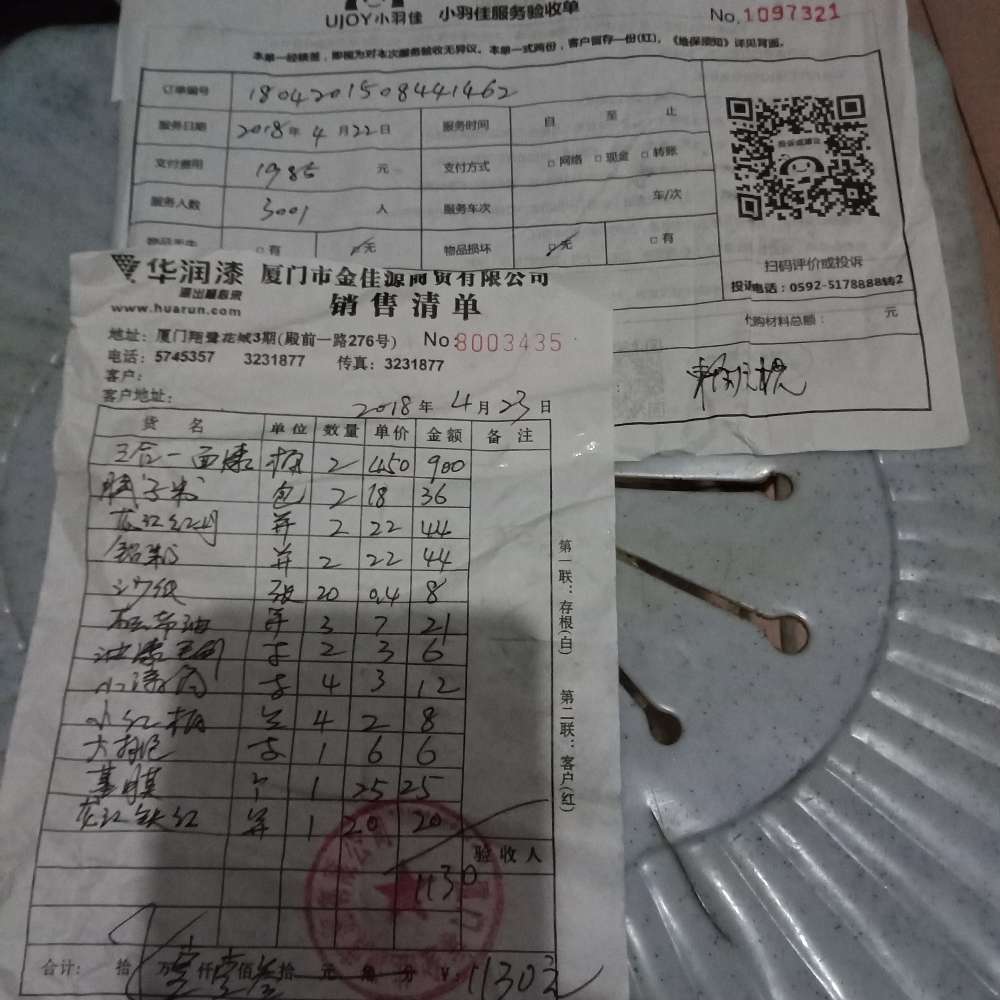 UJOY小羽佳 小羽佳服务验收单
No.1097321
本单一经核签，即视为对本次服务验收无异议。本单一式两份，客户留存一份(红)，《维保须知》详见背面。
订单编号 1804201508441462
服务日期 2018年4月22日 服务时间 自 至 止
支付费用 1985 元 支付方式 □网络 □现金 □转账
服务人数 3001 人 服务车次 车/次
物品丢失 □有 □无 物品损坏 □无 □有
投诉或建议
扫码评价或投诉
投诉电话：0592-5178888转2
代购材料总额： 元
华润漆 厦门市金佳源商贸有限公司
www.huarun.com 销售清单
地址：厦门翔鹭花城3期(殿前一路276号) No:8003435
电话：5745357 3231877 传真：3231877
客户：
客户地址： 2018年4月23日
货名 单位 数量 单价 金额 备注
三合一面漆 桶 2 450 900
腻子粉 包 2 18 36
2 22 44
铝粉 2 22 44
沙纸 张 20 0.4 8
3 7 21
2 3 6
4 3 12
4 2 8
1 6 6
个 1 25 25
铁红 1 20 20
验收人
1130
合计： 拾 万 壹 仟 壹 佰 叁 拾 元 角 分 ¥：1130元
第一联：存根(白) 第二联：客户(红)